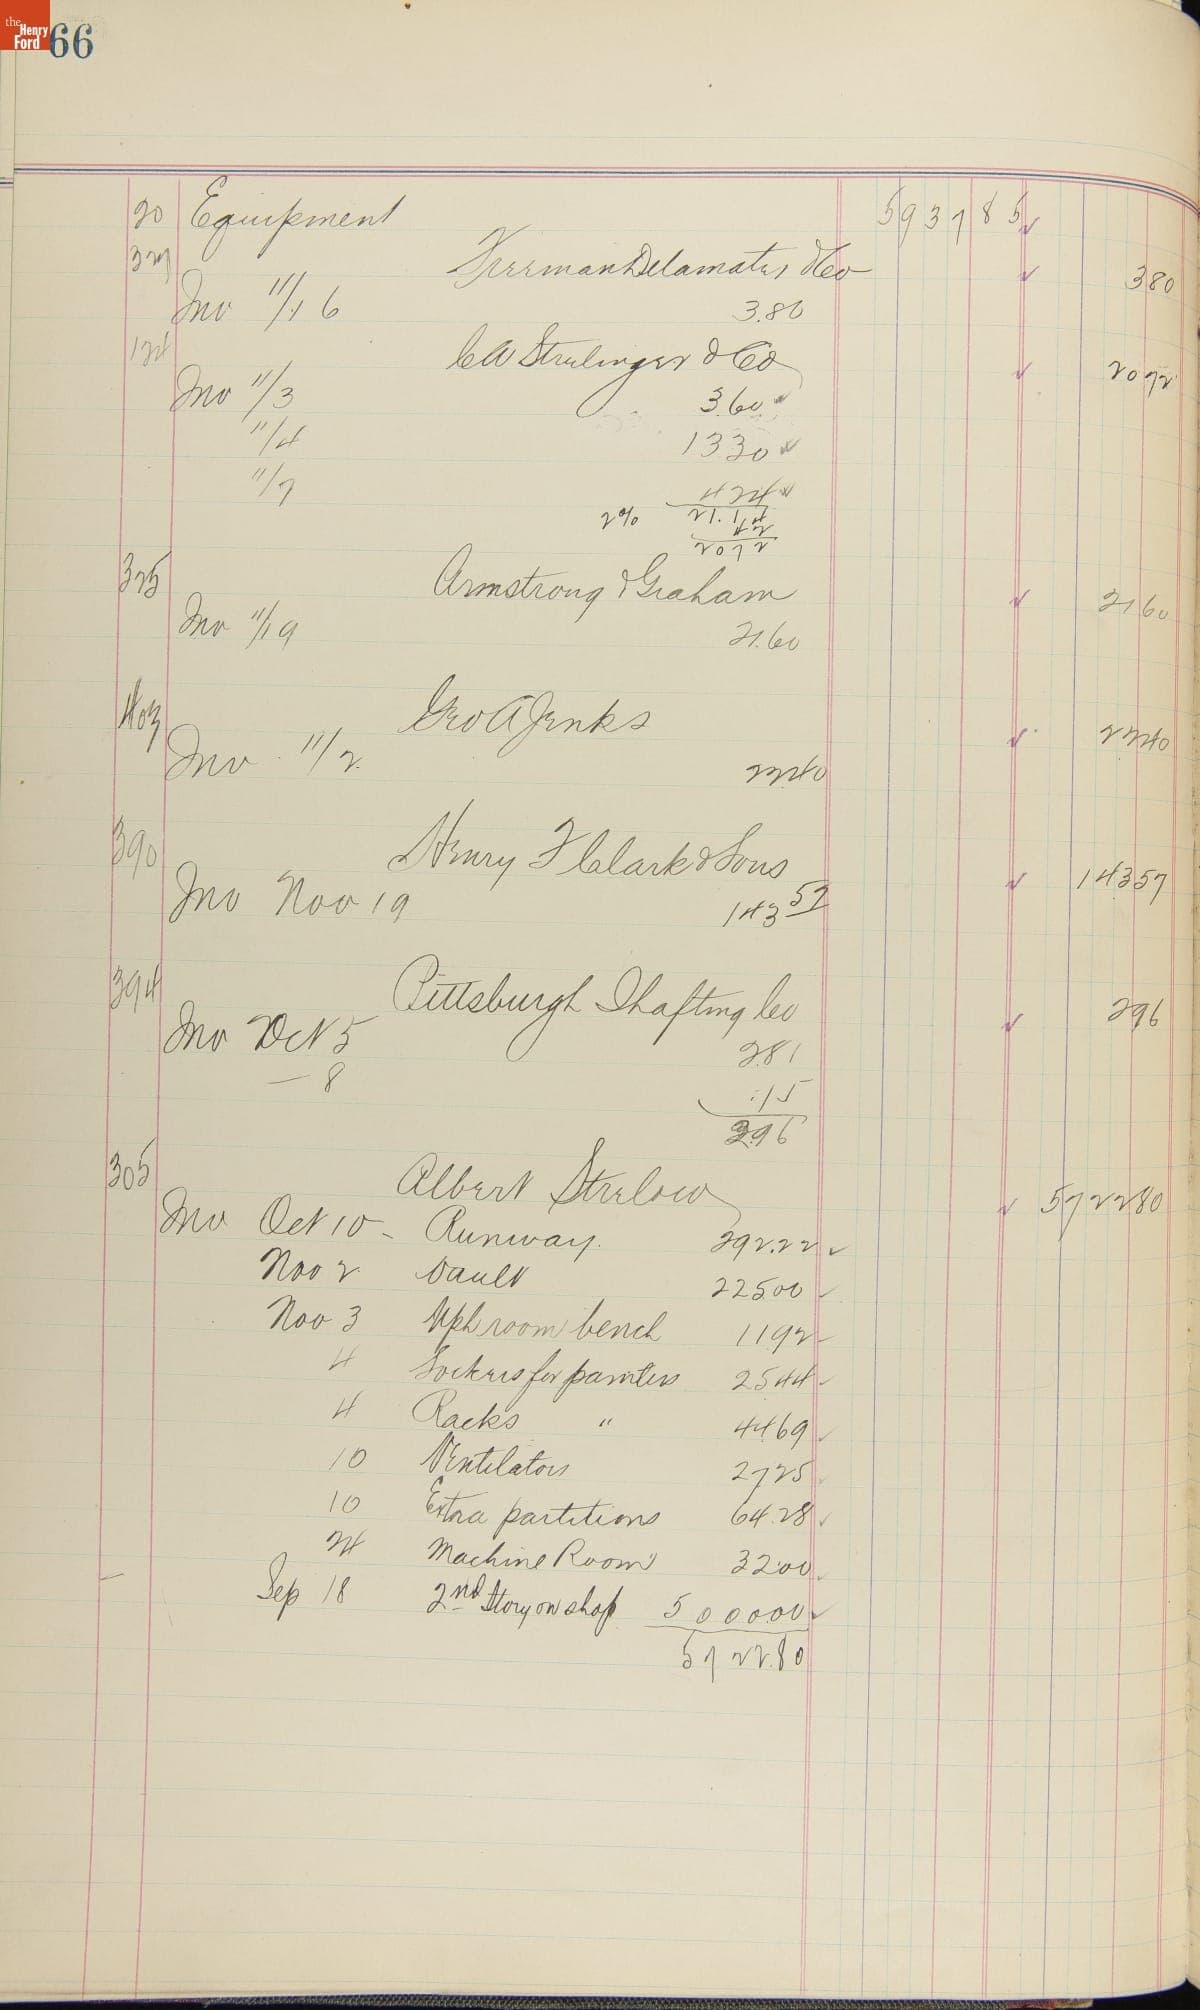 the Henry Ford
66
20 Equipment 5937 85
327 Freeman Delamater & Co 380
Inv 11/16 3.80
124 C A Strelinger & Co 2072
Inv 11/3 3.60
11/4 1330
11/7 424
2%
325 Armstrong & Graham 2160
Inv 11/19 21.60
403 Geo A Jenks 2240
Inv 11/2 2240
390 Henry F Clark & Sons 14357
Inv Nov 19 143 57
394 Pittsburgh Shafting Co 296
Inv Oct 5 2.81
— 8 .15
2.96
305 Albert Strelow 572280
Inv Oct 10 - Runway. 292.22
Nov 2 Vault 225.00
Nov 3 Uph room bench 1192
4 Lockers for painters 2544
4 Racks " 44.69
10 Ventilators 2725
10 Extra partitions 64.28
24 Machine Room 32.00
Sep 18 2nd Story on shop 5000.00
5722.80